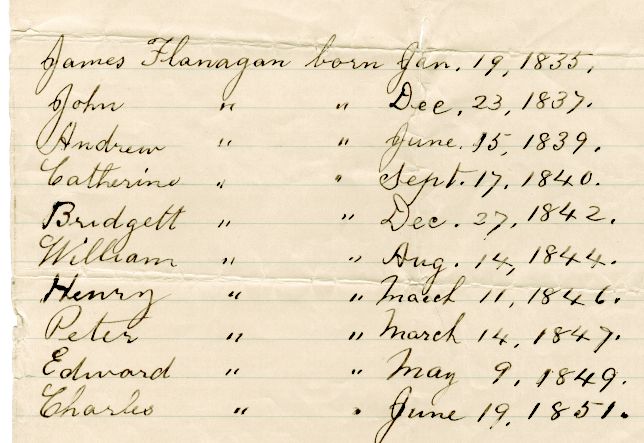 James Flanagan born Jan. 19, 1835.
John " " Dec. 23, 1837.
Andrew " " June. 15, 1839.
Catherine " " Sept. 17, 1840.
Bridgett " " Dec. 27, 1842.
William " " Aug. 14, 1844.
Henry " " March 11, 1846.
Peter " " March 14, 1847.
Edward " " May 9, 1849.
Charles " " June 19, 1851.